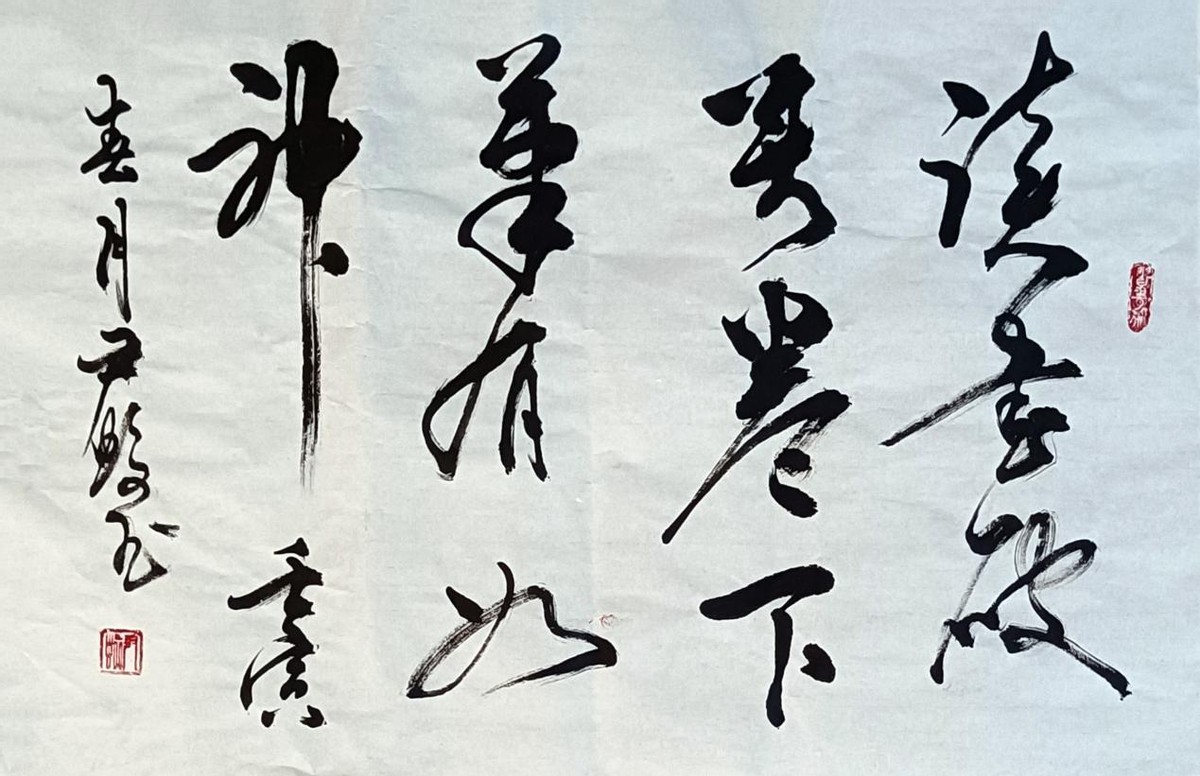 读书破
万卷下
笔有如
神 壬寅
春月尹